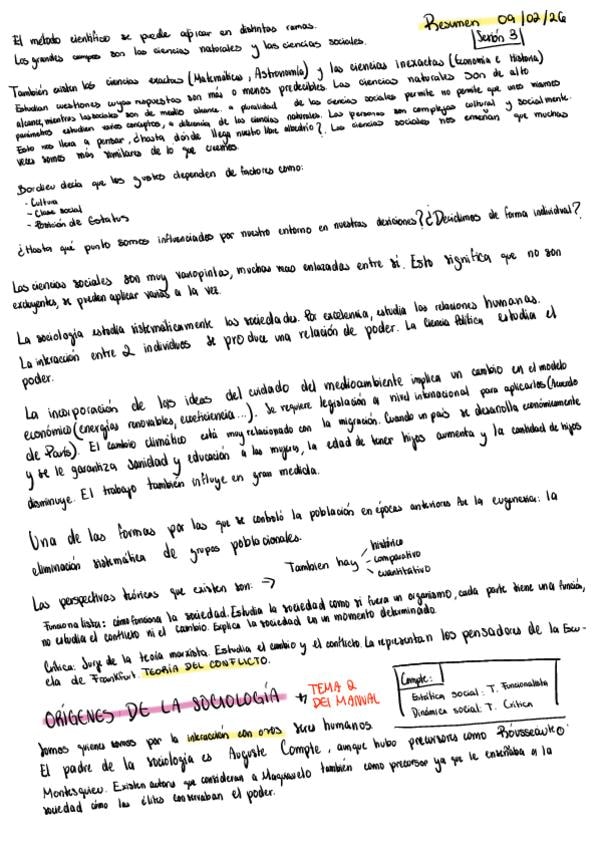 Resumen 09/02/26
Sesión 3
El método científico se puede aplicar en distintas ramas.
Los grandes campos son las ciencias naturales y las ciencias sociales.
También existen las ciencias exactas (Matemáticas, Astronomía) y las ciencias inexactas (Economía e Historia)
Estudian cuestiones cuyas respuestas son más o menos predecibles. Las ciencias naturales son de alto
alcance, mientras las sociales son de medio alcance. a pluralidad de las ciencias sociales permite no permite que unos mismos
parámetros estudien varios conceptos, a diferencia de las ciencias naturales. Las personas son complejas cultural y socialmente.
Esto nos lleva a pensar, ¿hasta dónde llega nuestro libre albedrío? Las ciencias sociales nos enseñan que muchas
veces somos más similares de lo que creemos.
Bordieu decía que los gustos dependen de factores como:
- Cultura
- Clase social
- Posición de Estatus
¿Hasta qué punto somos influenciados por nuestro entorno en nuestras decisiones? ¿Decidimos de forma individual?
Las ciencias sociales son muy variopintas, muchas veces enlazadas entre sí. Esto significa que no son
excluyentes, se pueden aplicar varias a la vez.
La sociología estudia sistemáticamente las sociedades. Por excelencia, estudia las relaciones humanas.
La interacción entre 2 individuos se produce una relación de poder. La Ciencia Política estudia el
poder.
La incorporación de las ideas del cuidado del medioambiente implica un cambio en el modelo
económico (energías renovables, ecoeficiencia...). Se requiere legislación a nivel internacional para aplicarlos (Acuerdo
de París). El cambio climático está muy relacionado con la migración. Cuando un país se desarrolla económicamente
y se le garantiza sanidad y educación a las mujeres, la edad de tener hijos aumenta y la cantidad de hijos
disminuye. El trabajo también influye en gran medida.
Una de las formas por las que se controló la población en épocas anteriores fue la eugenesia: la
eliminación sistemática de grupos poblacionales.
Las perspectivas teóricas que existen son: →
Tambien hay
histórico
- comparativo
cuantitativo
Funcionalista: cómo funciona la sociedad. Estudia la sociedad como si fuera un organismo, cada parte tiene una función,
no estudia el conflicto ni el cambio. Explica la sociedad en un momento determinado.
Crítica: Surge de la teoía marxista. Estudia el cambio y el conflicto. La representan los pensadores de la Escu-
ela de Frankfurt. TEORÍA DEL CONFLICTO.
ORÍGENES DE LA SOCIOLOGÍA → TEMA 2
DEL MANUAL
Compte:
Estática social: T. Funcionalista
Dinámica social: T. Crítica
Somos quienes somos por la interacción con otros seres humanos.
El padre de la sociología es Auguste Compte, aunque hubo precursores como Rousseau o
Montesquieu. Existen autores que consideran a Maquiavelo también como precursor ya que le enseñaba a la
sociedad cómo las élites conservaban el poder.